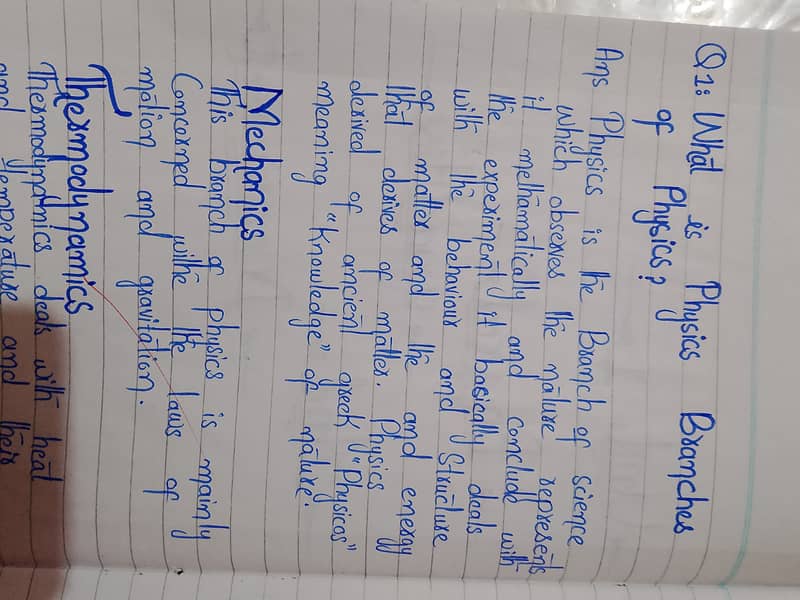 Q1: What is Physics Branches
of Physics?
Ans Physics is the Branch of science
which observes the nature represents
it methamatically and conclud with
the experiment it basically deals
with the behaviour and Structure
of matter and the and energy
that desires of matter. Physics
desived of ancient greek "Physicos"
meaning "Knowledge" of nature.
Mechanics
This branch of physics is mainly
Concerned withe the laws of
motion and gravitation.
Thermodynamics
Thermodynamics deals with heat
and temperature and their